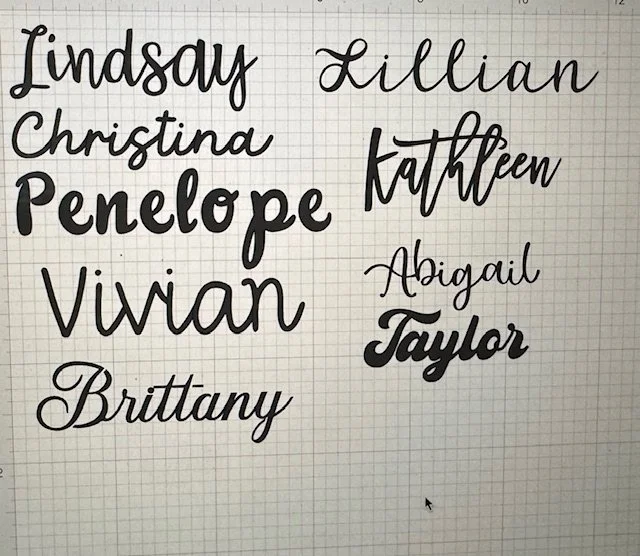 Lindsay
Christina
Penelope
Vivian
Brittany
Lillian
Kathleen
Abigail
Taylor